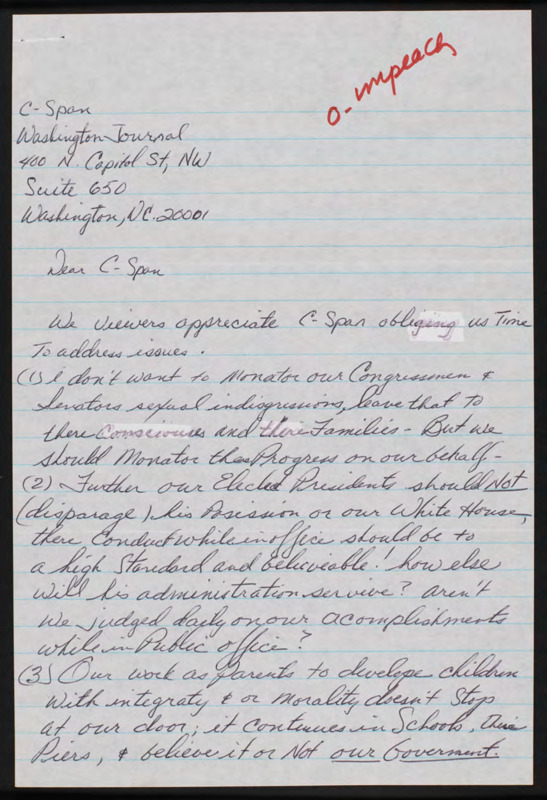 O- impeach
C-Span
Washington Journal
400 N. Capitol St, NW
Suite 650
Washington, DC. 20001
Dear C-Span
We viewers appreciate C-Span obligeing us Time
To address issues.
(1) I don't want to Monator our Congressmen &
Senators sexual indisgressions, leave that to
there Consciouses and there Families - But we
should Monator their Progress on our behalf -
(2) Further our Elected Presidents should Not
(disparage) his Posission or our White House,
there Conduct while in office should be to
a high Standard and believeable! how else
will his administration servive? aren't
we judged daily on our acomplishments
while in Public office?
(3) Our work as Parents to develope children
with integraty & or Morality doesn't Stop
at our door; it continues in Schools, their
Piers, & believe it or Not our Goverment.